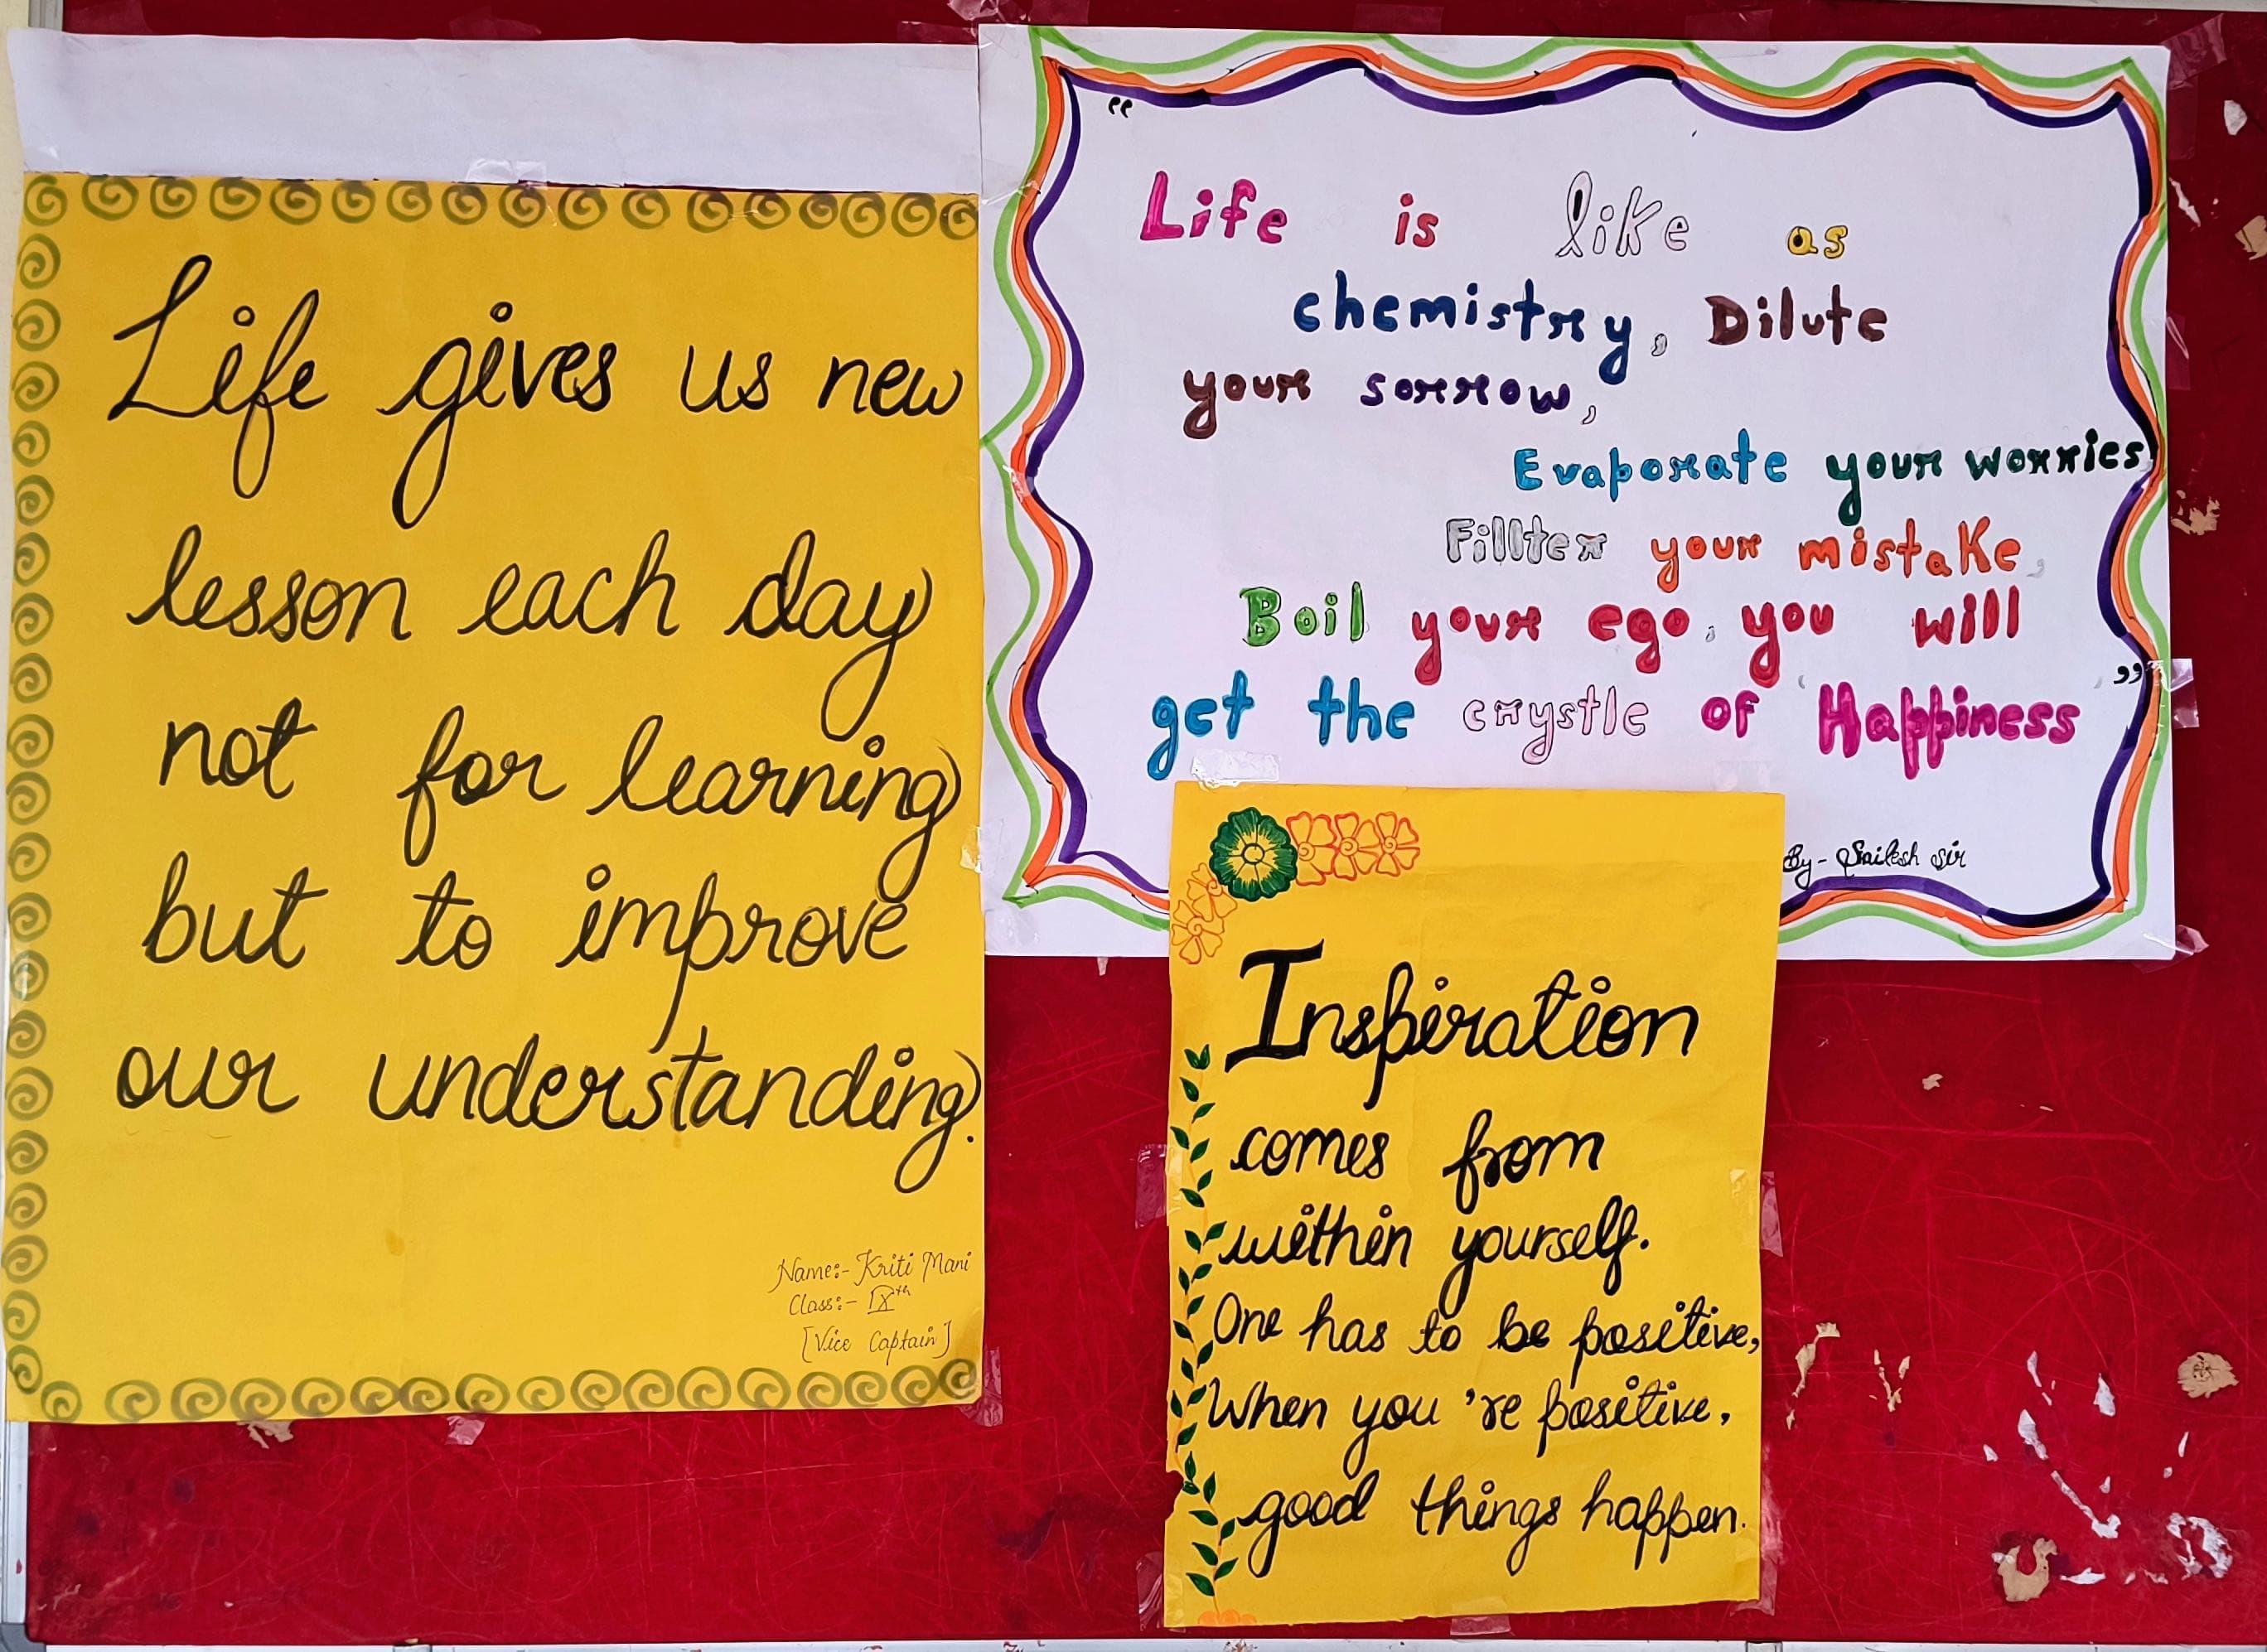 Life gives us new
lesson each day
not for learning
but to improve
our understanding.
Name:- Kriti Mani
Class:- IXth
[Vice Captain]
“
Life is like as
chemistry, Dilute
your sorrow,
Evaporate your worries
Fillter your mistake,
Boil your ego, you will
get the crystle of 'Happiness'
”
By- Sailesh sir
Inspiration
comes from
within yourself.
One has to be positive,
When you 're positive,
good things happen.